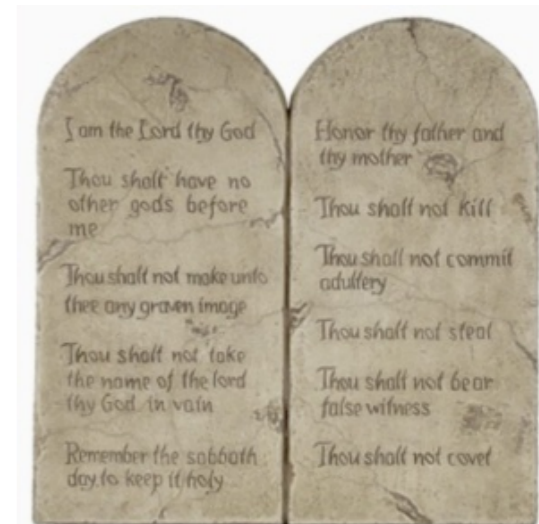 I am the Lord thy God
Thou shalt have no
other gods before
me
Thou shalt not make unto
thee any graven image
Thou shalt not take
the name of the lord
thy God in vain
Remember the sabbath
day to keep it holy
Honor thy father and
thy mother
Thou shall not kill
Thou shall not commit
adultery
Thou shalt not steal
Thou shalt not bear
false witness
Thou shalt not covet